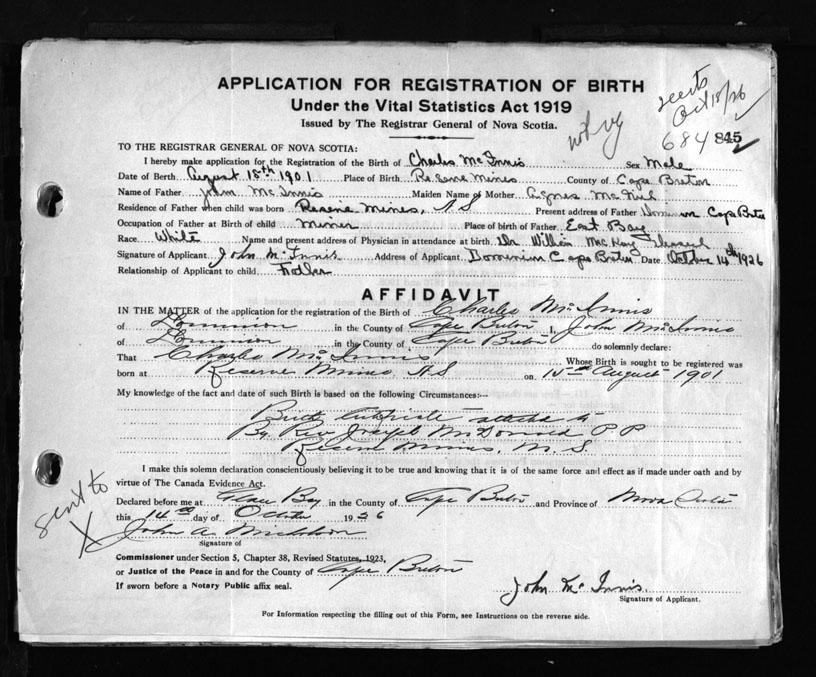 APPLICATION FOR REGISTRATION OF BIRTH
Under the Vital Statistics Act 1919
Issued by The Registrar General of Nova Scotia.
Oct 18/26
684 845
TO THE REGISTRAR GENERAL OF NOVA SCOTIA:
I hereby make application for the Registration of the Birth of Charles McInnis Sex Male
Date of Birth August 15th 1901 Place of Birth Reserve Mines County of Cape Breton
Name of Father John McInnis Maiden Name of Mother Agnes McNeil
Residence of Father when child was born Reserve Mines, N S Present address of Father Dominion Cape Breton
Occupation of Father at Birth of child Miner Place of birth of Father East Bay
Race White Name and present address of Physician in attendance at birth Dr William McKay
Signature of Applicant John McInnis Address of Applicant Dominion Cape Breton Date October 14th 1926
Relationship of Applicant to child Father
AFFIDAVIT
IN THE MATTER of the application for the registration of the Birth of Charles McInnis
of Dominion in the County of Cape Breton I, John McInnis
of Dominion in the County of Cape Breton do solemnly declare:
That Charles McInnis Whose Birth is sought to be registered was
born at Reserve Mines, N S on 15th August 1901
My knowledge of the fact and date of such Birth is based on the following Circumstances:—
Birth Certificate
By Rev Joseph McDonald P P
Reserve Mines, N. S.
I make this solemn declaration conscientiously believing it to be true and knowing that it is of the same force and effect as if made under oath and by
virtue of The Canada Evidence Act.
Declared before me at Glace Bay in the County of Cape Breton and Province of Nova Scotia
this 14th day of October 1926
John A. Nicholson
Signature of
Commissioner under Section 5, Chapter 38, Revised Statutes, 1923,
or Justice of the Peace in and for the County of Cape Breton
If sworn before a Notary Public affix seal.
sent to
X
John McInnis.
Signature of Applicant.
For Information respecting the filling out of this Form, see Instructions on the reverse side.